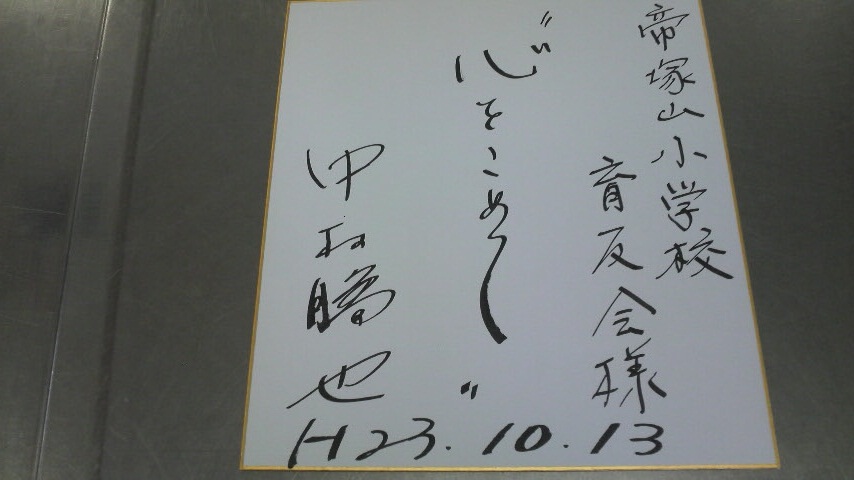 帝塚山小学校
育友会様
"心をこめて"
中村勝也
H23.10.13